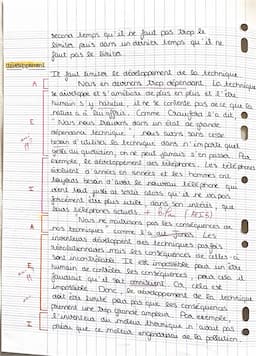 second temps qu'il ne faut pas trop le
limiter puis dans un dernier temps qu'il ne
faut pas le limiter.
Développement
Il faut limiter le développement de la technique.
A Nous en devenons trop dépendant. La technique
se développe et s'améliore de plus en plus et l'être
humain s'y habitue, il ne se contente pas de ce que la
nature a à lui offrir. Comme Crawford l'a dit,
E " Nous nous trouvons dans un état de grande
dépendance technique ", nous avons sans cesse
besoin d'utiliser la technique dans n'importe quel
geste du quotidien, on ne peut jamais s'en passer. Par
exemple, le développement des téléphones. Les téléphones
évoluent d'années en années et les hommes ont
I toujours besoin d'avoir le nouveau téléphone qui
vient tout juste de sortir alors qu'il ne va pas
forcément être plus utile, dans son intérêt, que
leurs téléphones actuels.
A " Nous ne maîtrisons pas les conséquences de
nos techniques " comme l'a dit Jonas. Les
inventeurs développent des techniques parfois
révolutionnaires mais les conséquences de celles-ci
E sont incontrôlables. Il est impossible pour un être
humain de contrôler les conséquences, pour cela il
faudrait qu'il soit omniscient. Or, cela est
impossible. Donc, le développement de la technique
doit être limité pour pas que ses conséquences
prennent une trop grande ampleur. Par exemple,
I l'inventeur du moteur thermique n'avait pas
prévu que ce moteur engendrerai de la pollution.